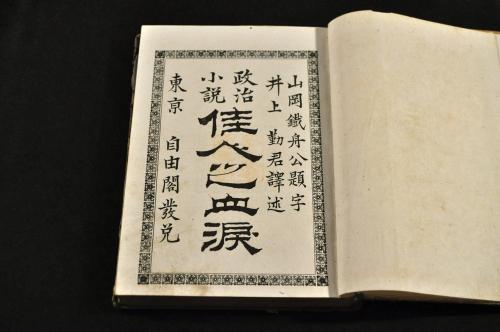 山岡鐵舟公題字
井上勤君譯述
政治小説
佳人之血涙
東京 自由閣發兌